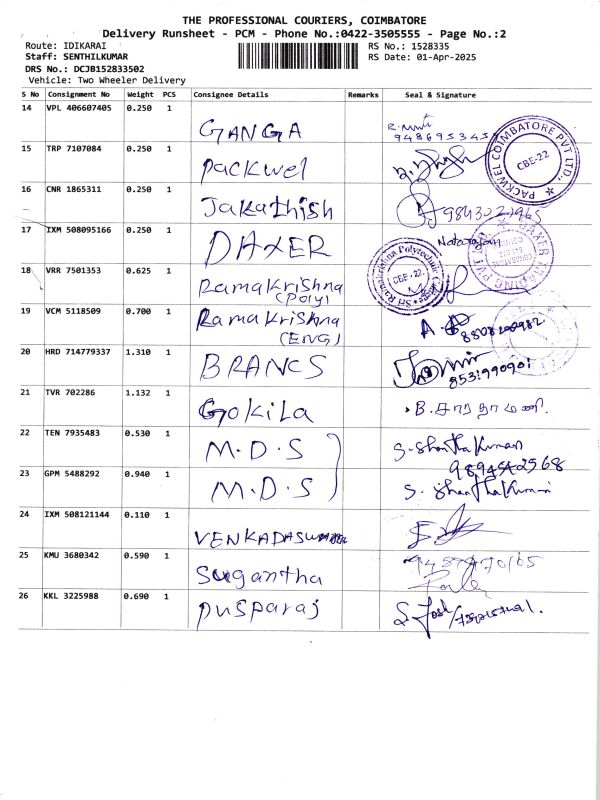 THE PROFESSIONAL COURIERS, COIMBATORE
Delivery Runsheet - PCM - Phone No.:0422-3505555 - Page No.:2
Route: IDIKARAI RS No.: 1528335
Staff: SENTHILKUMAR RS Date: 01-Apr-2025
DRS No.: DCJB152833502
Vehicle: Two Wheeler Delivery
S No Consignment No Weight PCS Consignee Details Remarks Seal & Signature
14 VPL 406607405 0.250 1
GANGA
9486953451
15 TRP 7107084 0.250 1
Packwel
PACKWEL COIMBATORE PVT LTD., CBE-22
16 CNR 1865311 0.250 1
Jakathish
17 IXM 508095166 0.250 1
DAXER
Natarajan
18 VRR 7501353 0.625 1
Ramakrishna
(Poly)
Sri Ramakrishna Polytechnic College CBE-22.
19 VCM 5118509 0.700 1
Ramakrishna
(ENG)
8508200982
20 HRD 714779337 1.310 1
BRANCS
8531990901
21 TVR 702286 1.132 1
Gokila
22 TEN 7935483 0.530 1
M.D.S
S-Shantha Kumari
9894542568
23 GPM 5488292 0.940 1
M.D.S
S. Shantha Kumari
24 IXM 508121144 0.110 1
25 KMU 3680342 0.590 1
Sugantha
26 KKL 3225988 0.690 1
Pusparaj